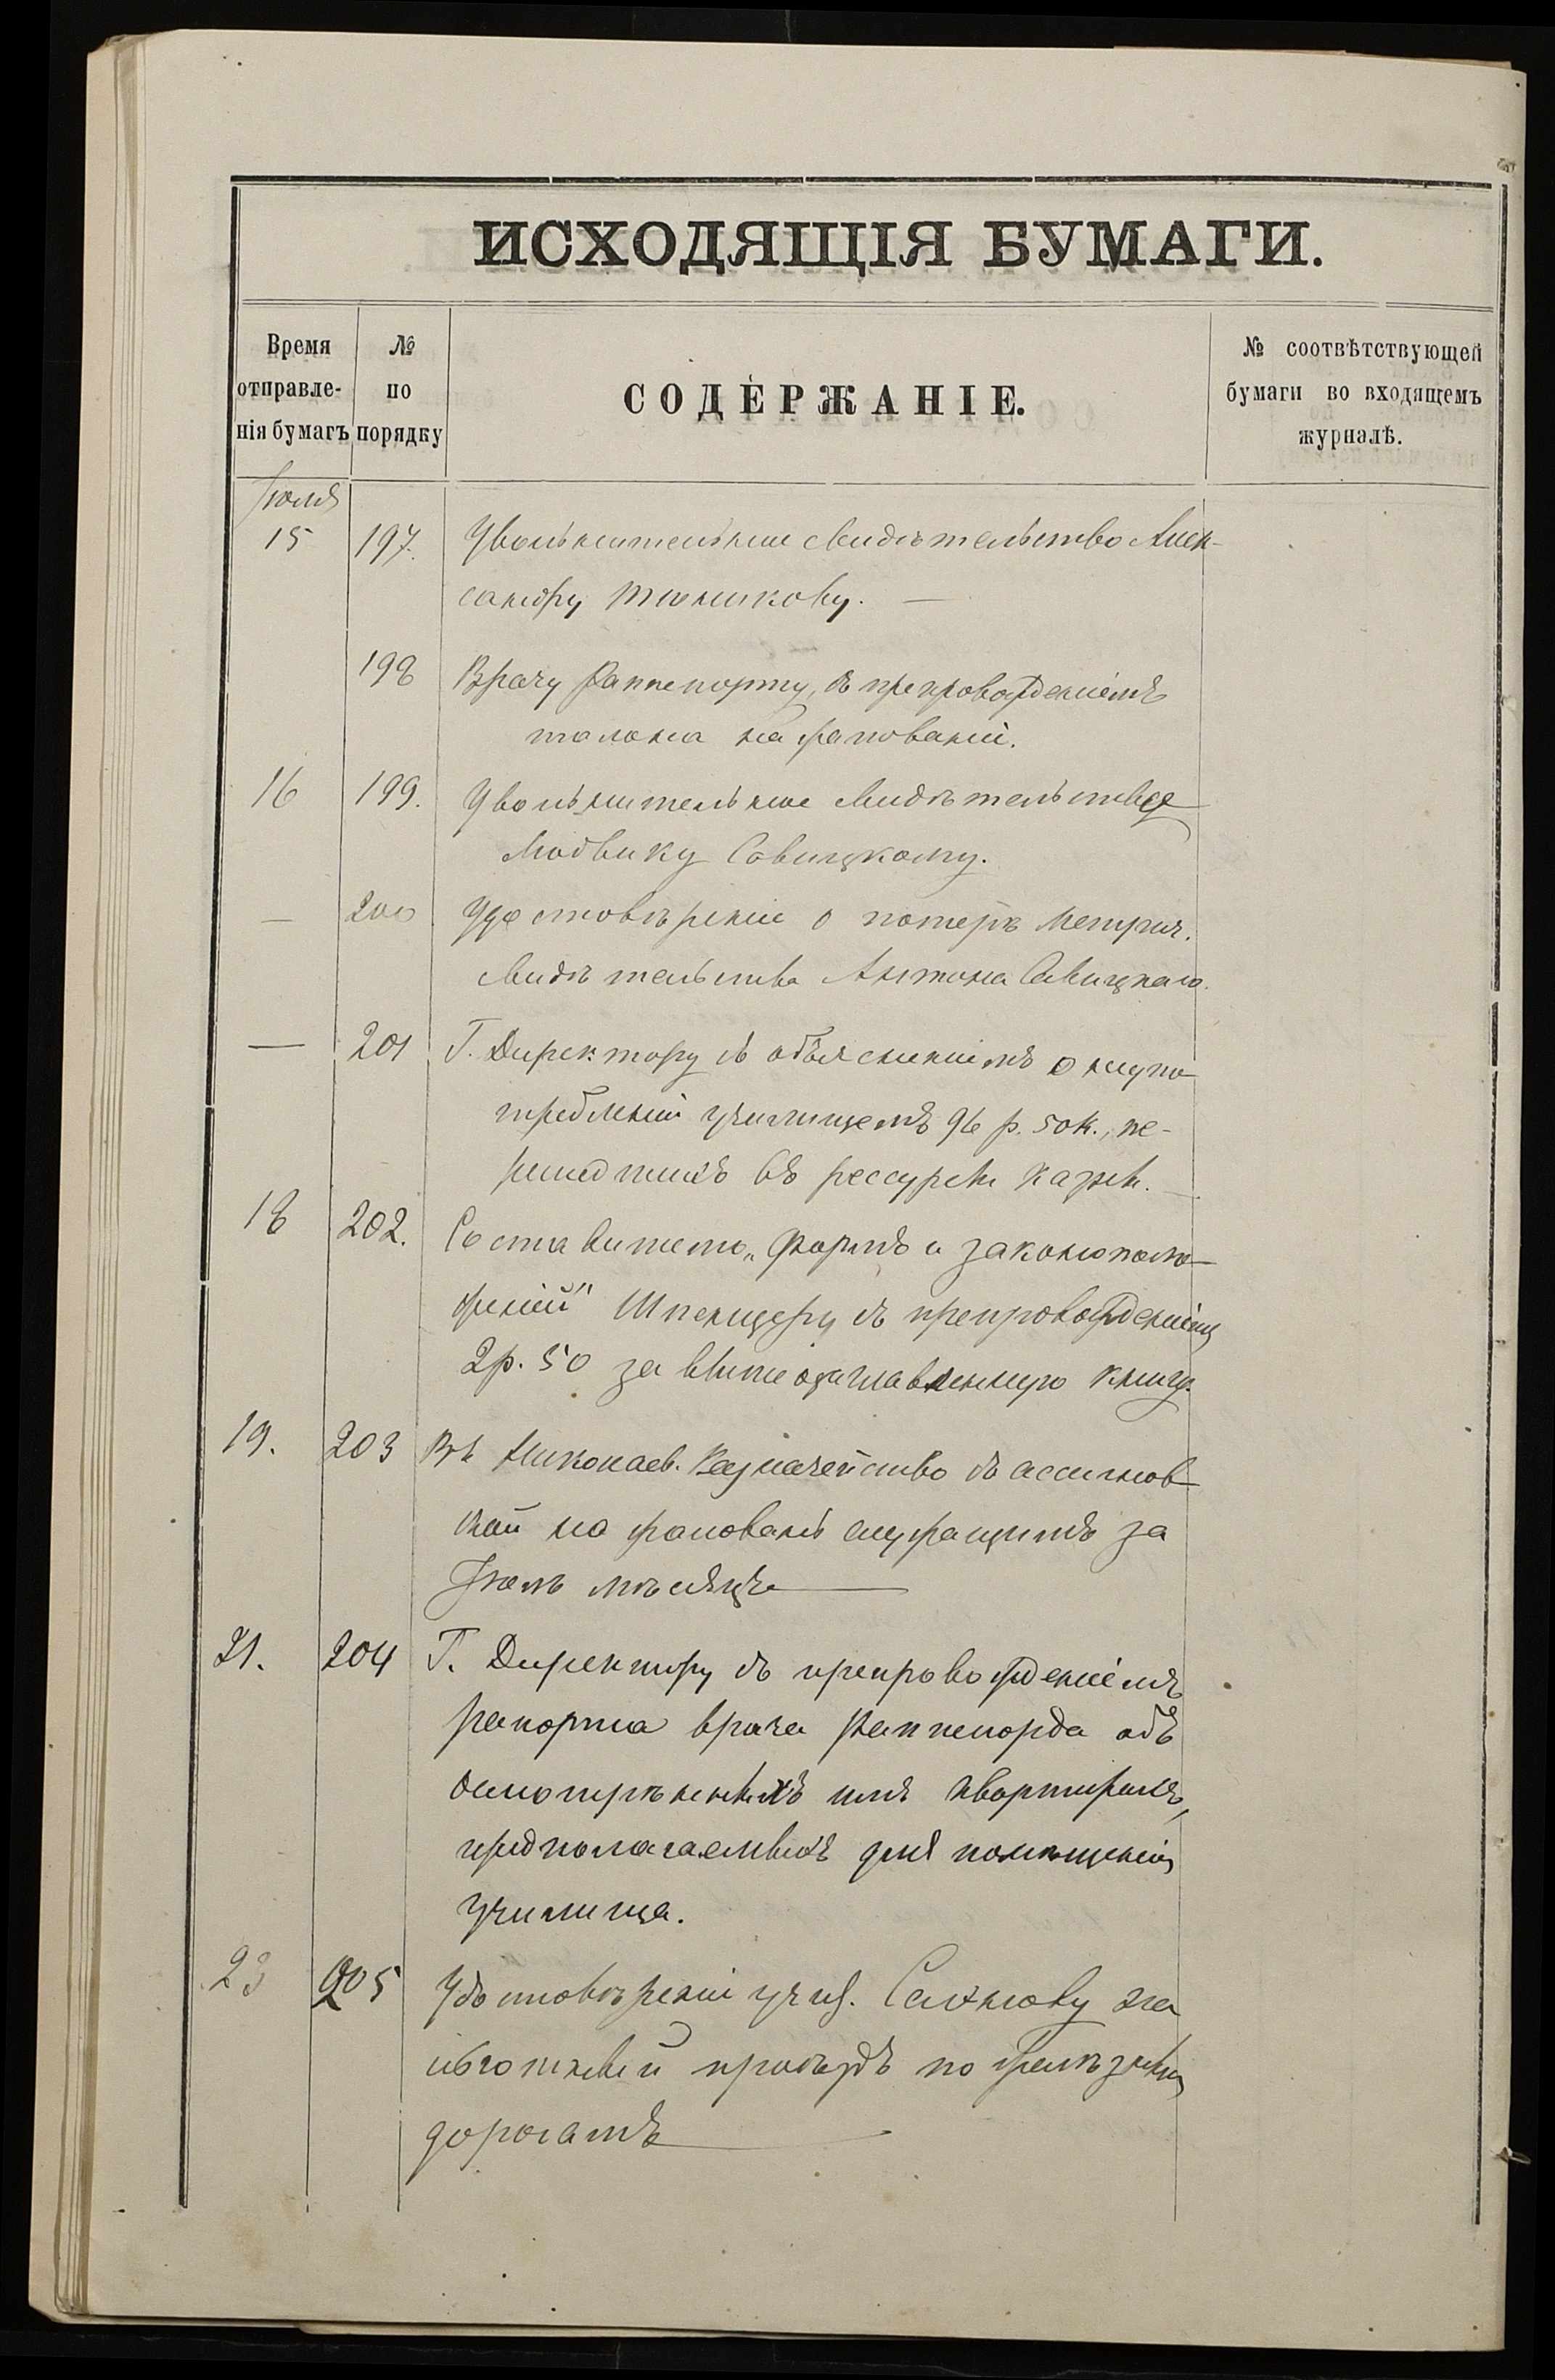 ИСХОДЯЩІЯ БУМАГИ.
Время отправле-нія бумагъ
№ по порядку
СОДЕРЖАНІЕ.
№ соотвѣтствующей бумаги во входящемъ журналѣ.
Іюля
15 197. Увольнительное свидѣтельство Алек-
сандру
198 Врачу Раппепорту, съ препровожденіемъ
талона на жалованій.
16 199. Увольнительное свидѣтельство
Людвику Савицкому.
— 200 Удостовѣреніе о потерѣ метрич.
свидѣтельства Антона Савицкаго.
— 201 Г. Директору съ объясненіемъ о неупо-
требленіи училищемъ 96 р. 50 к., пе-
решедшихъ въ рессурсы казны.
18 202. Составителю „Формъ и законополо-
женій" Шпенцеру съ препровожденіем
2 р. 50 за вышеозаглавленную книгу.
19. 203 Въ Николаев. Казначейство съ ассигнов-
кой на жалованье служащимъ за
Іюль мѣсяцъ
21. 204 Г. Директору съ препровожденіемъ
рапорта врача Раппепорда объ
осмотрѣнныхъ имъ квартирахъ,
предполагаемыхъ для помѣщенія
училища.
23 205 Удостовѣреніе учит. на
льготный проѣздъ по желѣзным
дорогамъ